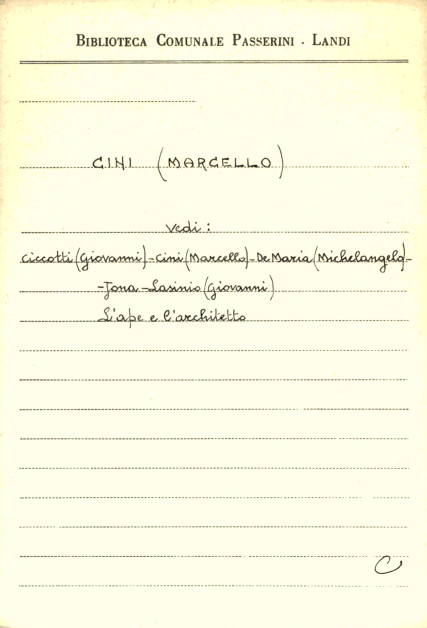 BIBLIOTECA COMUNALE PASSERINI - LANDI
CINI (MARCELLO)
Vedi:
Ciccotti (Giovanni) - Cini (Marcello) - De Maria (Michelangelo) -
- Jona - Lasinio (Giovanni)
L'ape e l'architetto
C